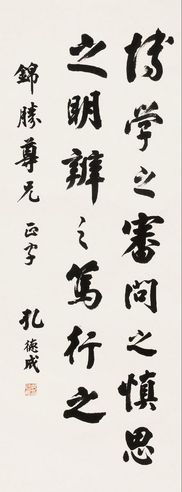 博学之審問之慎思
之明辨之篤行之
錦勝尊兄 正字
孔德成